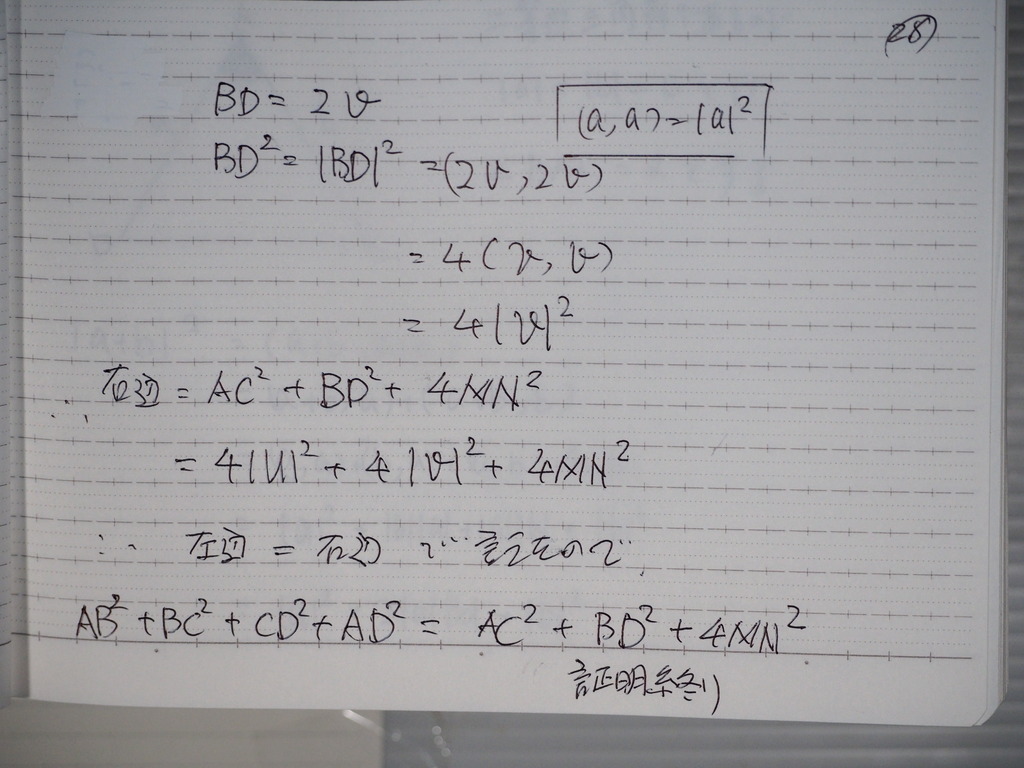 (28)
BD = 2v
(a, a) = |a|²
BD² = |BD|² = (2v, 2v)
= 4(v, v)
= 4|v|²
∴ 右辺 = AC² + BD² + 4MN²
= 4|u|² + 4|v|² + 4MN²
∴ 左辺 = 右辺 で なので
AB² + BC² + CD² + AD² = AC² + BD² + 4MN²
証明終り